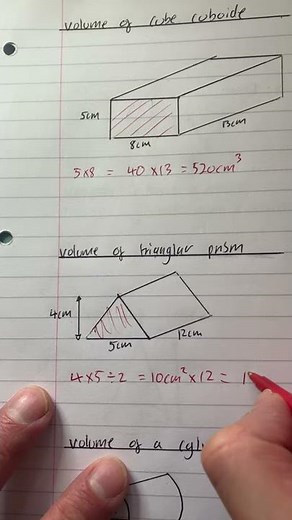 volume of cube cuboide
5cm
8cm
13cm
5×8 = 40 ×13 = 520cm³
volume of trianglar prism
4cm
5cm
12cm
4×5÷2 = 10cm²×12 = 1
volume of a cyl